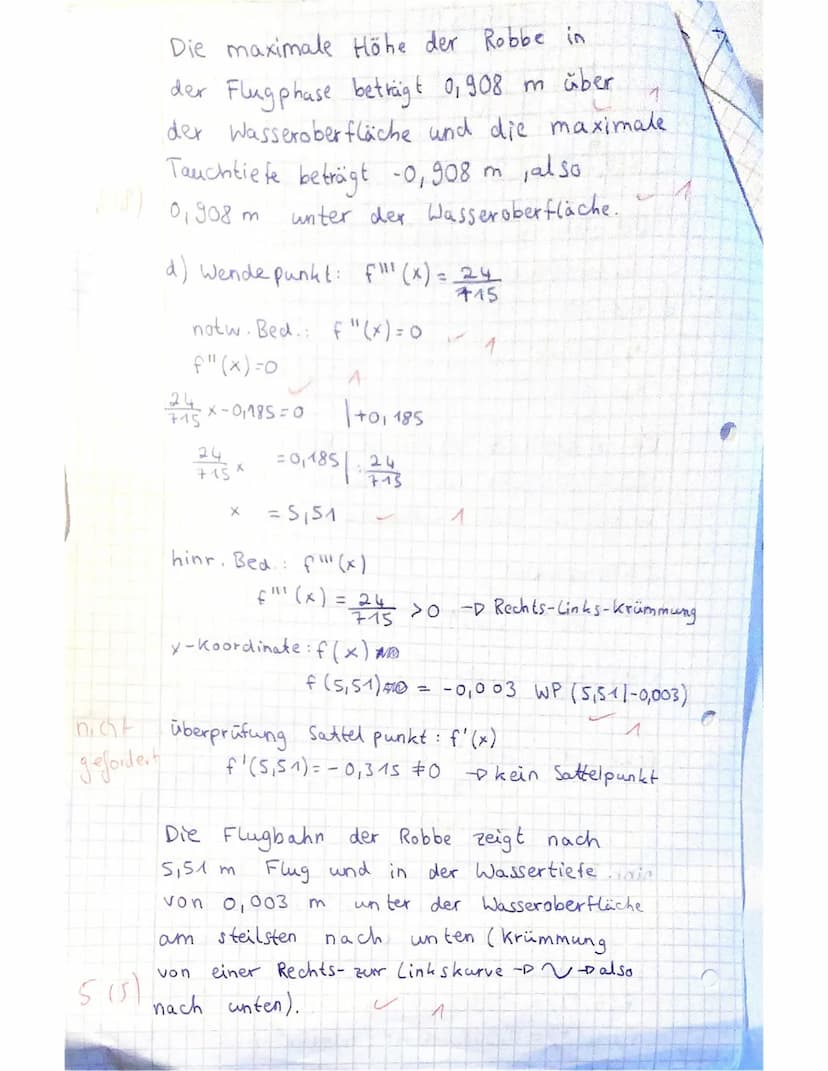 Die maximale Höhe der Robbe in
der Flugphase beträgt 0,908 m über
1
der Wasseroberfläche und die maximale
Tauchtiefe beträgt -0,908 m, also
0,908 m unter der Wasseroberfläche. 1
d) Wendepunkt: f'''(x) = 24/715
notw. Bed.: f''(x)=0 1
f''(x)=0
1
24/715 x - 0,185 = 0 | +0,185
24/715 x = 0,185 | : 24/715
x = 5,51 1
hinr. Bed.: f'''(x)
f'''(x) = 24/715 > 0 → Rechts-Links-Krümmung
y-Koordinate: f(x)
f(5,51) = -0,003 WP (5,51|-0,003)
1
nicht gefordert
überprüfung Sattelpunkt: f'(x)
f'(5,51) = -0,315 ≠ 0 → kein Sattelpunkt
Die Flugbahn der Robbe zeigt nach
5,51 m Flug und in der Wassertiefe
von 0,003 m unter der Wasseroberfläche
am steilsten nach unten (Krümmung
von einer Rechts- zur Linkskurve → → also
5 (5)
nach unten). 1